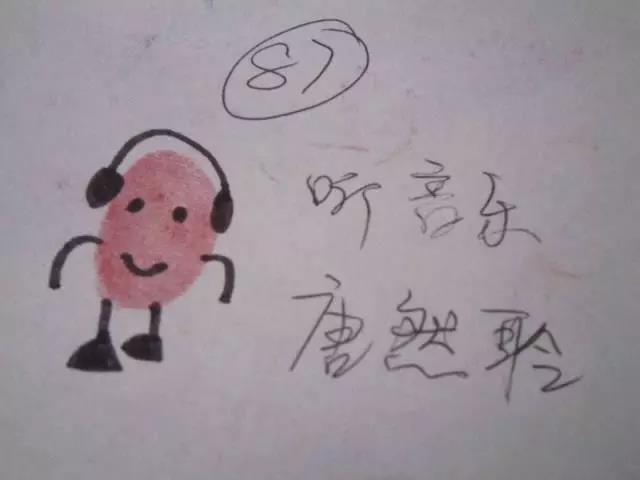 87
听音乐
唐然聆